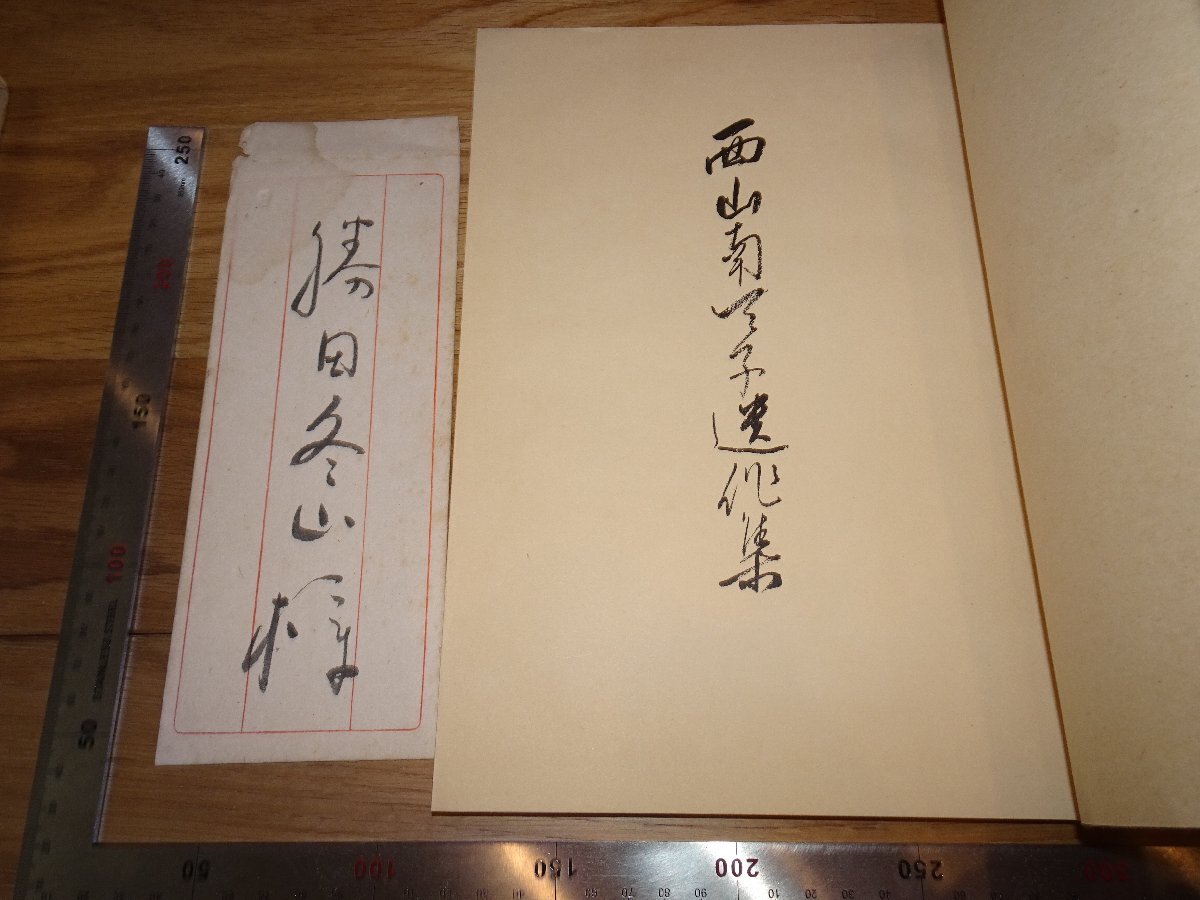 西山南天子遺作集
勝田冬山様
250
200
150
100
STAINLESS STEEL
50
50
100
150
200
250
300